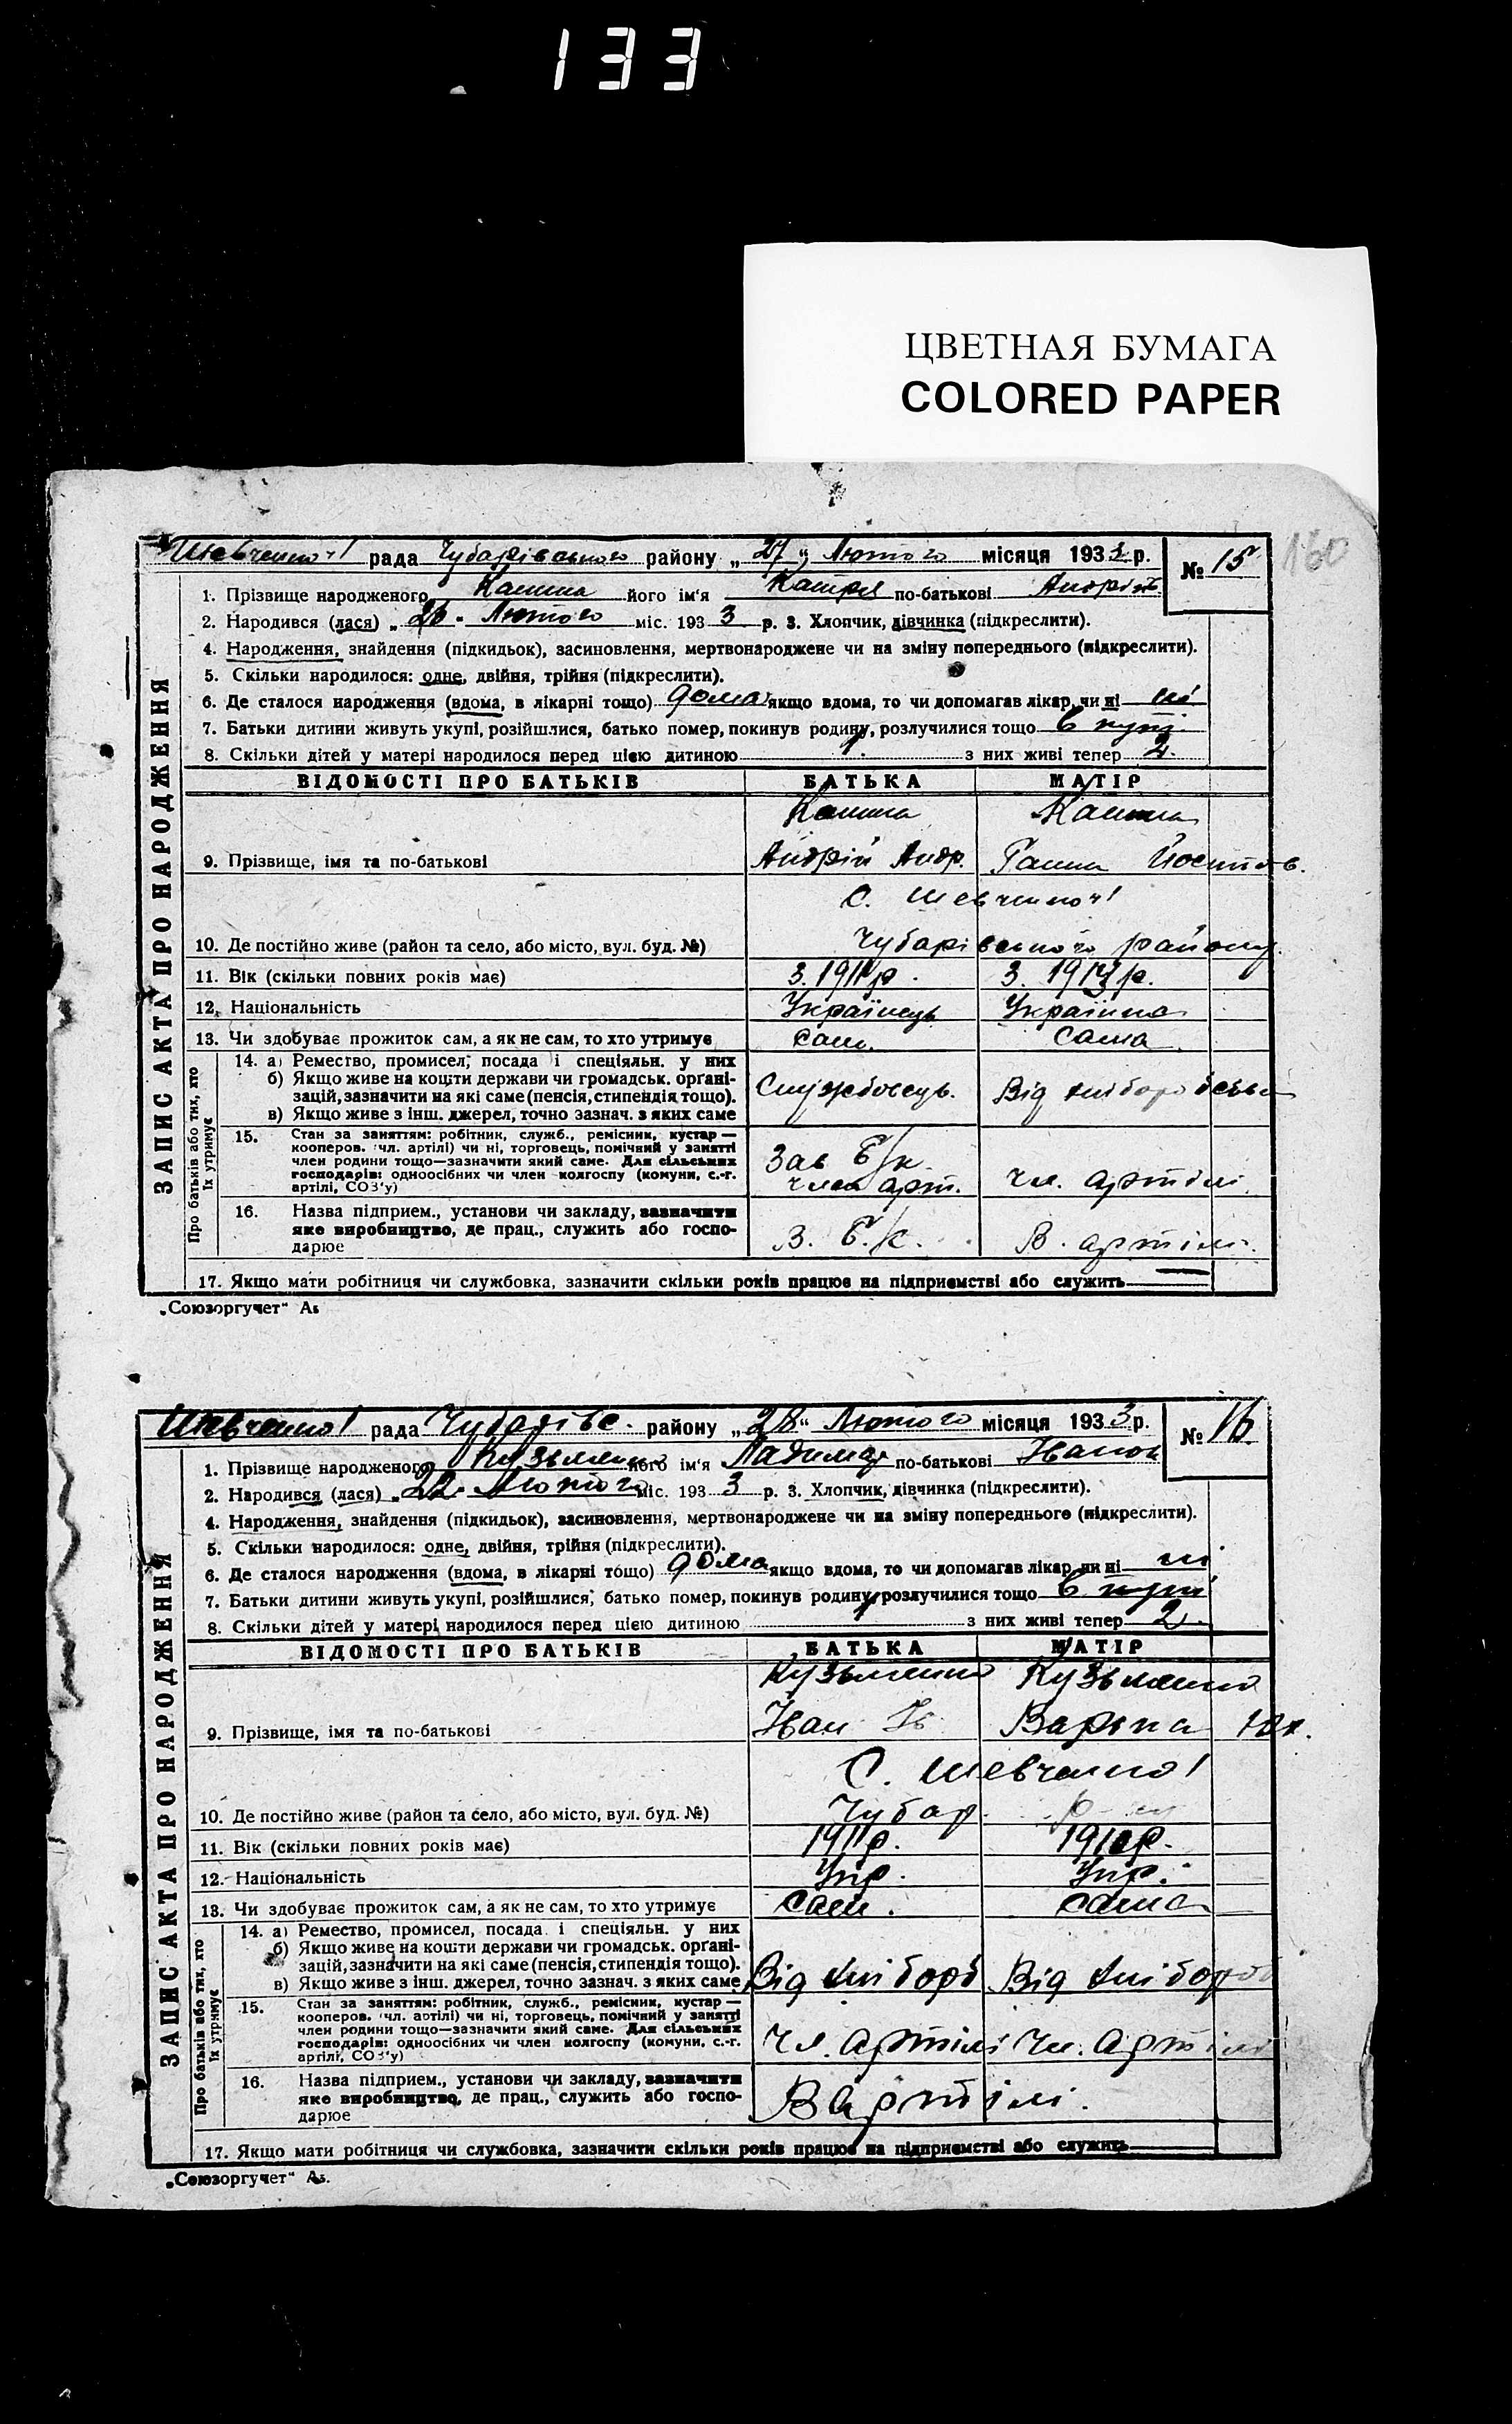 133
ЦВЕТНАЯ БУМАГА
COLORED PAPER
160
ЗАПИС АКТА ПРО НАРОДЖЕННЯ
Шевченко 1 рада Чубарівського району „ 27 “ Лютого місяця 1933 р. № 15
1. Прізвище народженого його ім‘я Катря по-батькові
2. Народився (лася) „ 26 “ Лютого міс. 193 3 р. 3. Хлопчик, дівчинка (підкреслити).
4. Народження, знайдення (підкидьок), засиновлення, мертвонароджене чи на зміну попереднього (підкреслити).
5. Скільки народилося: одне, двійня, трійня (підкреслити).
6. Де сталося народження (вдома, в лікарні тощо) дома якщо вдома, то чи допомагав лікар, чи ні ні
7. Батьки дитини живуть укупі, розійшлися, батько помер, покинув родину, розлучилися тощо в купі.
8. Скільки дітей у матері народилося перед цією дитиною 1. з них живі тепер 2.
ВІДОМОСТІ ПРО БАТЬКІВ БАТЬКА МАТІР
9. Прізвище, імя та по-батькові Андрій Андр. Ганна
С. Шевченко 1
10. Де постійно живе (район та село, або місто, вул. буд. №) Чубарівського району
11. Вік (скільки повних років має) З. 1911 р. З. 1913 р.
12. Національність Українець Українка
13. Чи здобуває прожиток сам, а як не сам, то хто утримує сам. сама
Про батьків або тих, хто їх утримує
14. а) Ремество, промисел, посада і спеціяльн. у них
б) Якщо живе на кошти держави чи громадськ. органі-
зацій, зазначити на які саме (пенсія, стипендія тощо). Службовець. Від хліборобства
в) Якщо живе з інш. джерел, точно зазнач. з яких саме
15. Стан за заняттям: робітник, служб., ремісник, кустар —
кооперов. (чл. артілі) чи ні, торговець, помічний у занятті
член родини тощо—зазначити який саме. Для сільських Зав Б/к.
господарів: одноосібних чи член колгоспу (комуни, с.-г. член арт. чл. артілі.
артілі, СОЗ‘у)
16. Назва підприєм., установи чи закладу, зазначити
яке виробництво, де прац., служить або госпо- В. Б./к. В. артілі.
дарює
17. Якщо мати робітниця чи службовка, зазначити скільки років працює на підприємстві або служить
„Союзоргучет“
ЗАПИС АКТА ПРО НАРОДЖЕННЯ
Шевченко 1 рада Чубарівс. району „ 28 “ Лютого місяця 193 3 р. № 16
1. Прізвище народженого Кузьменко його ім‘я Ладимир по-батькові Іванов
2. Народився (лася) „ 22 “ Лютого міс. 193 3 р. 3. Хлопчик, дівчинка (підкреслити).
4. Народження, знайдення (підкидьок), засиновлення, мертвонароджене чи на зміну попереднього (підкреслити).
5. Скільки народилося: одне, двійня, трійня (підкреслити).
6. Де сталося народження (вдома, в лікарні тощо) дома якщо вдома, то чи допомагав лікар, чи ні ні
7. Батьки дитини живуть укупі, розійшлися, батько помер, покинув родину, розлучилися тощо в купі
8. Скільки дітей у матері народилося перед цією дитиною 1 з них живі тепер 2.
ВІДОМОСТІ ПРО БАТЬКІВ БАТЬКА МАТІР
Кузьменко Кузьменко
9. Прізвище, імя та по-батькові Іван Ів. Варька
С. Шевченко 1
10. Де постійно живе (район та село, або місто, вул. буд. №) Чубар.
11. Вік (скільки повних років має) 1911 р. 1910 р.
12. Національність Укр. Укр.
13. Чи здобуває прожиток сам, а як не сам, то хто утримує сам. сама
Про батьків або тих, хто їх утримує
14. а) Ремество, промисел, посада і спеціяльн. у них
б) Якщо живе на кошти держави чи громадськ. органі-
зацій, зазначити на які саме (пенсія, стипендія тощо).
в) Якщо живе з інш. джерел, точно зазнач. з яких саме Від хлібороб Від хлібороб
15. Стан за заняттям: робітник, служб., ремісник, кустар —
кооперов. (чл. артілі) чи ні, торговець, помічний у занятті
член родини тощо—зазначити який саме. Для сільських
господарів: одноосібних чи член колгоспу (комуни, с.-г. Чл. артілі Чл. артілі
артілі, СОЗ‘у)
16. Назва підприєм., установи чи закладу, зазначити
яке виробництво, де прац., служить або госпо- В артілі.
дарює
17. Якщо мати робітниця чи службовка, зазначити скільки років працює на підприємстві або служить
„Союзоргучет“